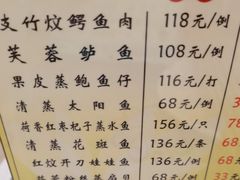 支竹炆鳄鱼肉 118元/例
芙蓉鲈鱼 108元/例
果皮蒸鲍鱼仔 116元/打
清蒸太阳鱼 68元/例 6
荷香红枣杞子蒸水鱼 156元/只
清蒸花斑鱼 136元/条 7
红饺开刀娃娃鱼 136元/例 68
68元/例 33